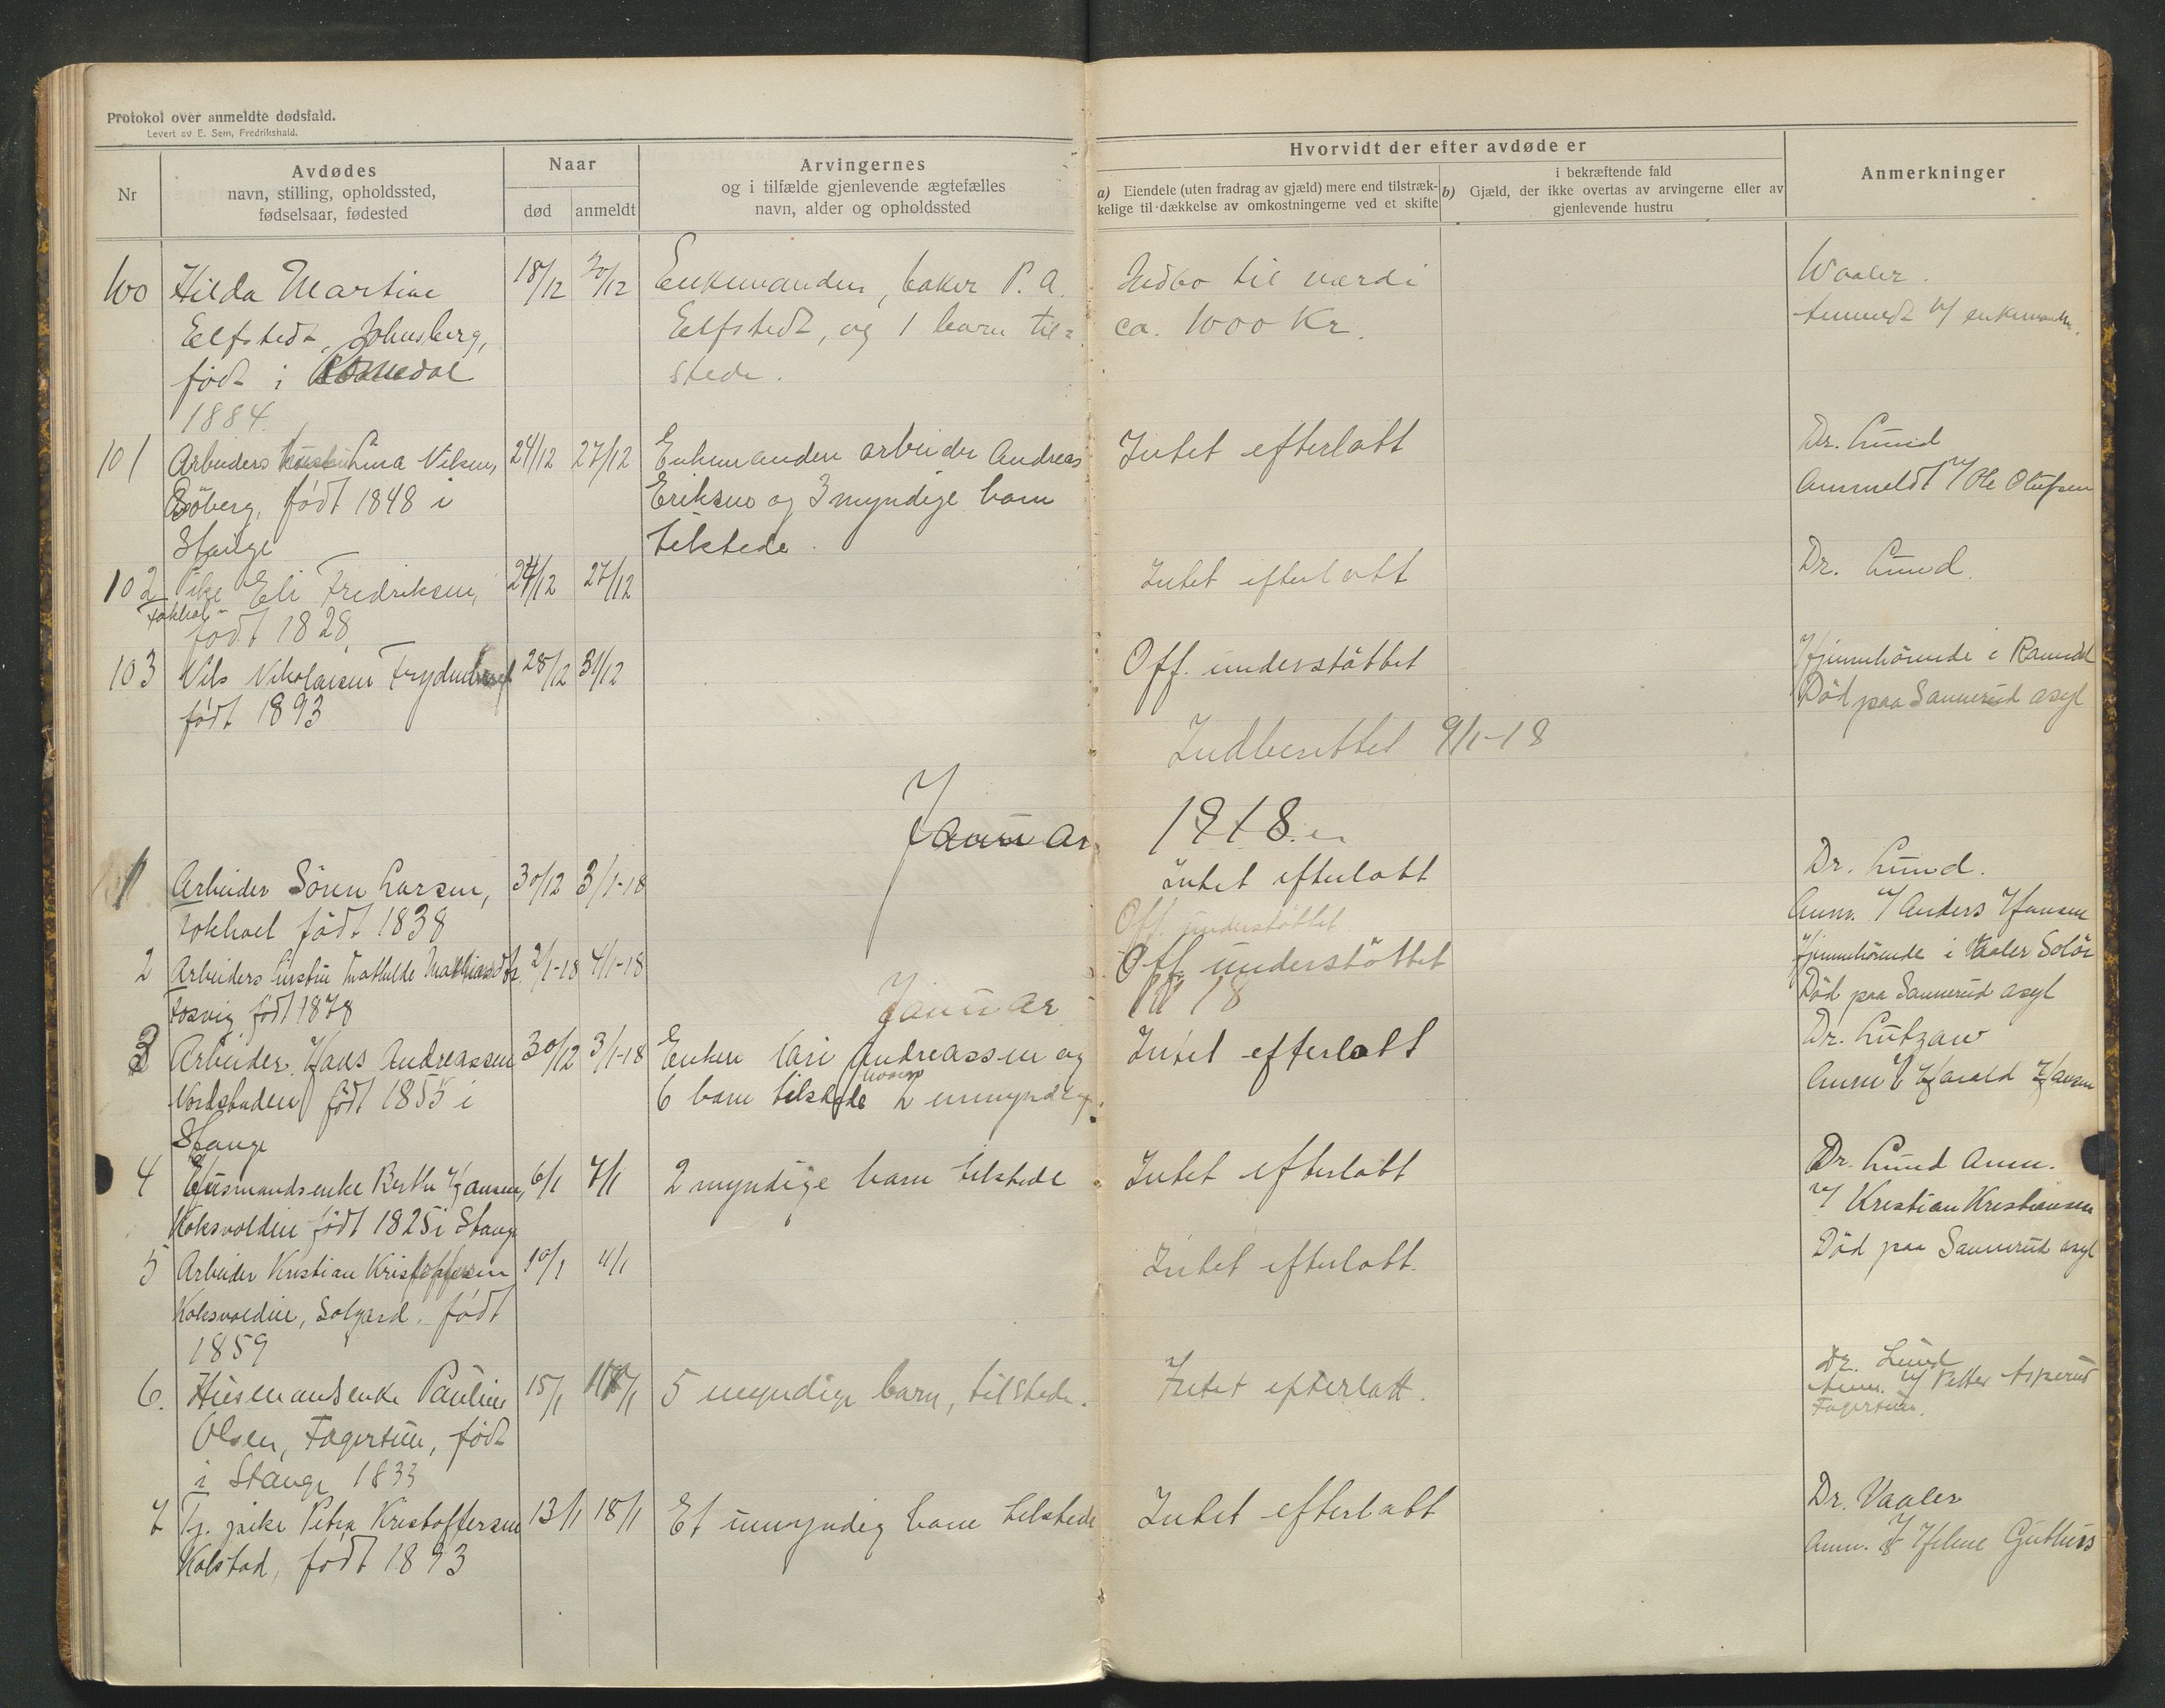 Protokol over anmeldte dødsfald.
Levert av E. Sem, Fredrikshald.
Nr
Avdødes
navn, stilling, opholdssted,
fødselsaar, fødested
Naar
død
anmeldt
Arvingernes
og i tilfælde gjenlevende ægtefælles
navn, alder og opholdssted
Hvorvidt der efter avdøde er
a) Eiendele (uten fradrag av gjæld) mere end tilstræk-
kelige til dækkelse av omkostningerne ved et skifte
i bekræftende fald
b) Gjæld, der ikke overtas av arvingerne eller av
gjenlevende hustru
Anmerkninger
100 Hilda Martine 18/12 20/12 Enkemanden, baker P. A. Indbo til værdi Waaler.
Elfstedt, Johnsberg, Elfstedt, og 1 barn til= ca. 1000 Kr. Anmeldt v/ enkemanden.
født i Romedal stede.
1884.
101 Arbeiders Lina Nilsen, 24/12 27/12 Enkemanden arbeider Andreas Intet efterlatt Dr. Lund
født 1848 i Eriksen og 3 myndige barn Anmeldt v/ Ole Olufsen
Stange tilstede.
102 Pike Eli Fredriksen, 24/12 27/12 Intet efterlatt Dr. Lund.
født 1828.
103 Nils Nikolaisen 28/12 31/12 Off. understøttet Hjemmehørende i Romedal
født 1893 Död paa Sannerud asyl
Indberettet 9/1-18
Januar 1918.
1 Arbeider Sören Larsen, 30/12 3/1-18 intet efterlatt Dr. Lund.
født 1838 Off. understøttet Anm. v/ Anders Hansen
2 Arbeiders hustru Mathilde Mathiasdtr. 2/1-18 4/1-18 Off understøttet Hjemmehørende i Vaaler Solör
født 1878 Januar 1918 Död paa Sannerud asyl
3 Arbeider Hans Andreassen 30/12 3/1-18 Enken Kari Andreassen og Intet efterlatt Dr. Lützow
Nordstuden født 1855 i 6 barn tilstede hvorav 2 umyndig. Anm v/ Harald Hansen
Stange
4 Husmandsenke Berthe Hansen, 6/1 7/1 2 myndige barn tilstede Intet efterlatt Dr. Lund Anm.
Koksvolden født 1825 i Stange v/ Kristian Kristiansen
5 Arbeider Kristian Kristoffersen 10/1 11/1 Intet efterlatt. Död paa Sannerud asyl
Koksvolden, født
1859
6. Husmandsenke Pauline 15/1 5 myndige barn, tilstede. Intet efterlatt. Dr. Lund
Olsen, Fagertun, født Anm. v/ Petter Asperud
i Stange 1833 Fagertun.
7 Tj. pike Petra Kristoffersen 13/1 18/1 Et umyndig barn tilstede Intet efterlatt Dr. Vaaler
Kolstad, født 1893 Anm. Helene